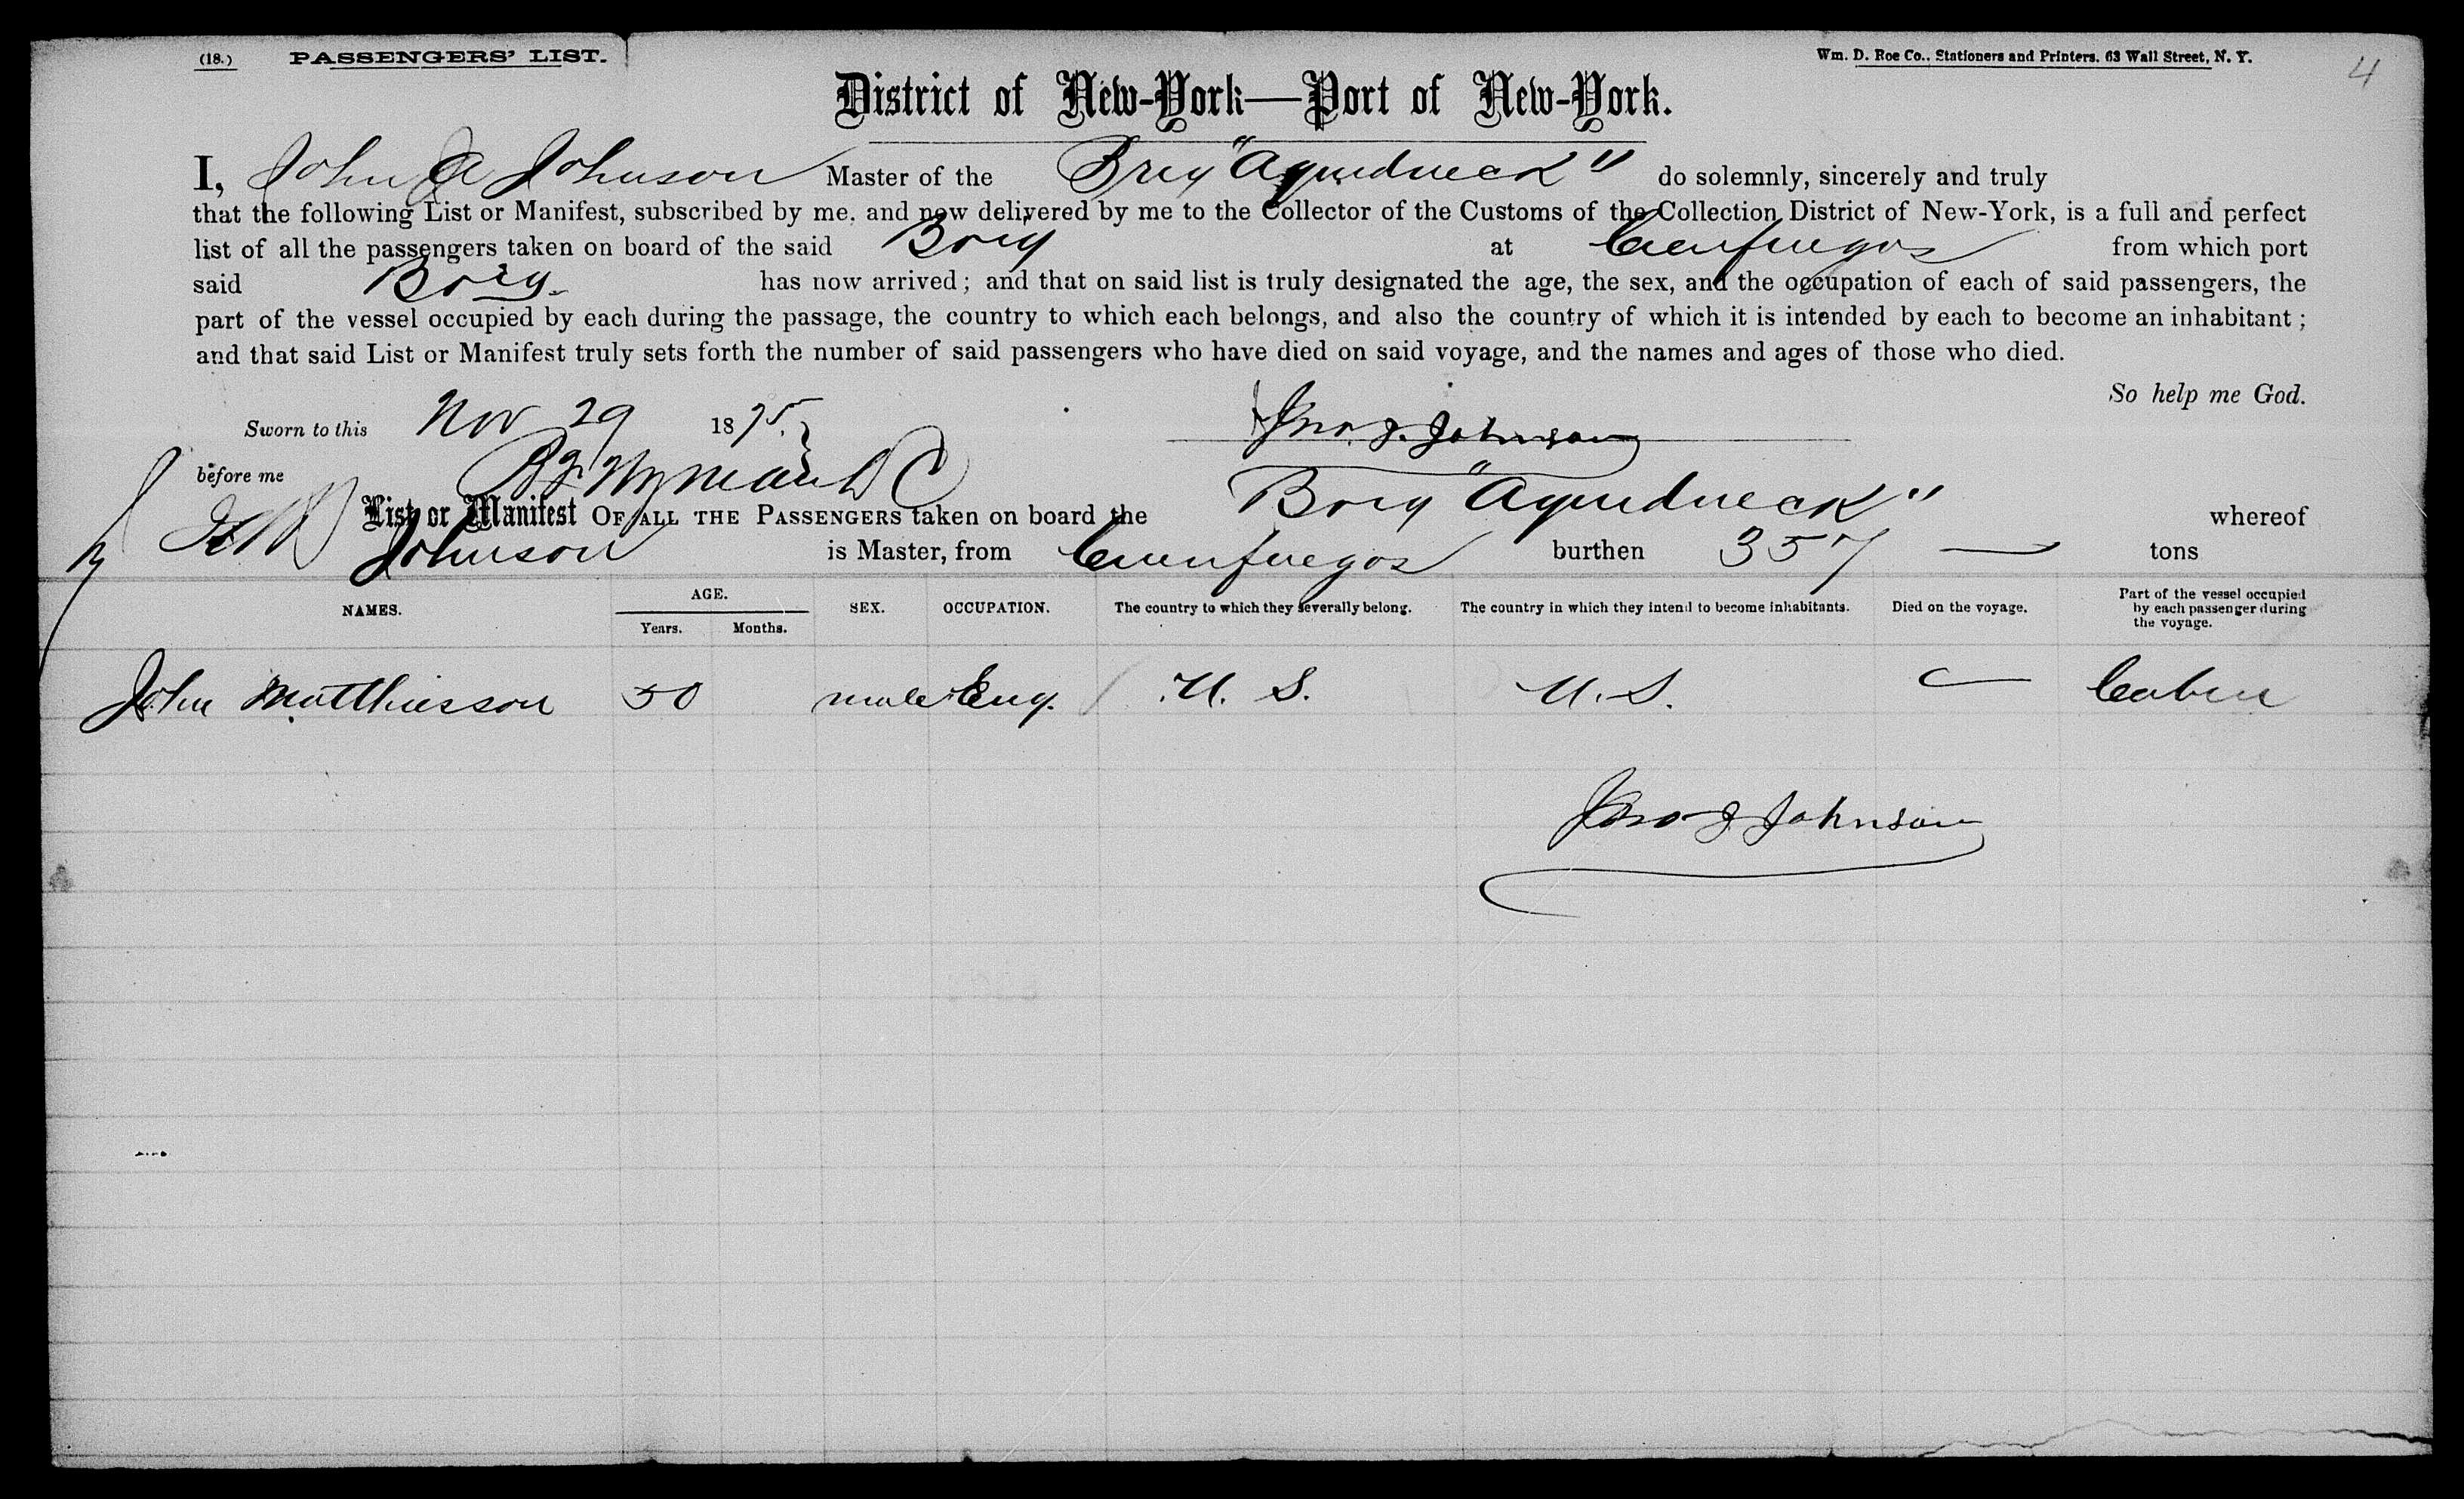 (18.) PASSENGERS' LIST. Wm. D. Roe Co., Stationers and Printers, 63 Wall Street, N. Y. 4
District of New-York—Port of New-York.
I, John A Johnson Master of the Brig "Aquidneck" do solemnly, sincerely and truly
that the following List or Manifest, subscribed by me, and now delivered by me to the Collector of the Customs of the Collection District of New-York, is a full and perfect
list of all the passengers taken on board of the said Brig at Cienfuegos from which port
said Brig has now arrived; and that on said list is truly designated the age, the sex, and the occupation of each of said passengers, the
part of the vessel occupied by each during the passage, the country to which each belongs, and also the country of which it is intended by each to become an inhabitant;
and that said List or Manifest truly sets forth the number of said passengers who have died on said voyage, and the names and ages of those who died.
So help me God.
Sworn to this Nov 29 1875. Jno. J. Johnson
before me
List or Manifest OF ALL THE PASSENGERS taken on board the Brig "Aquidneck" whereof
Johnson is Master, from Cienfuegos burthen 357 — tons
NAMES. AGE. Years. Months. SEX. OCCUPATION. The country to which they severally belong. The country in which they intend to become inhabitants. Died on the voyage. Part of the vessel occupied by each passenger during the voyage.
John Matthiesson 50 male Eng. U. S. U. S. — Cabin
Jno J Johnson